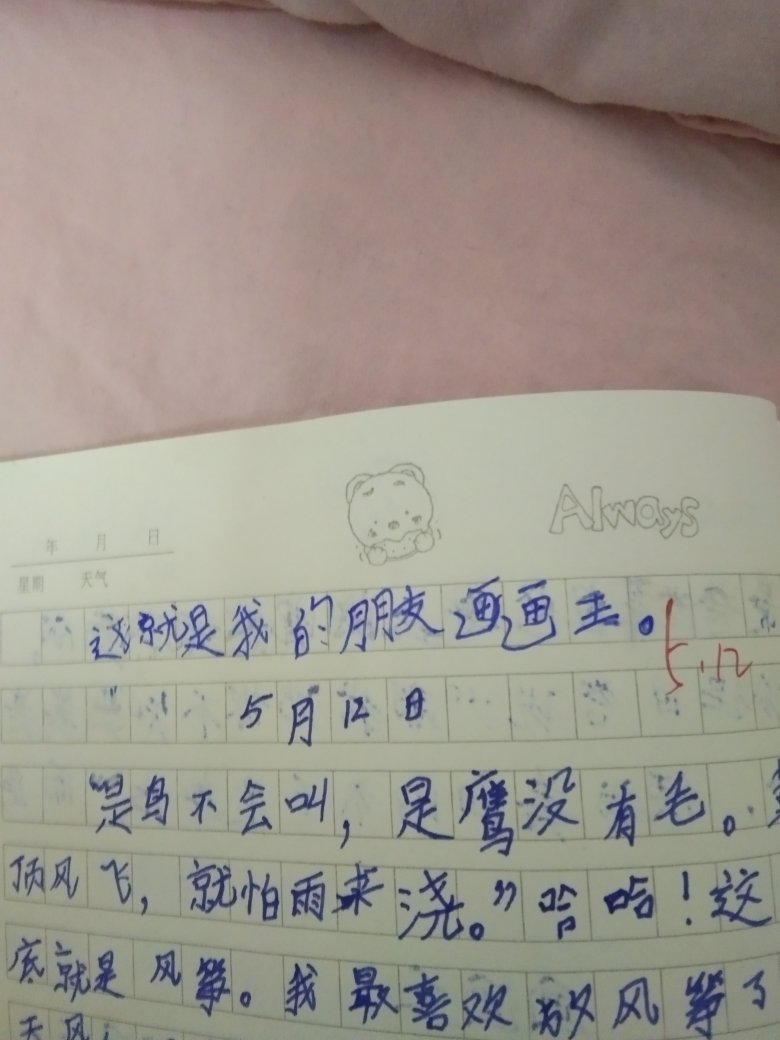 Always
年 月 日
星期 天气
这就是我的朋友画画王。
5.12
5月12日
“是鸟不会叫，是鹰没有毛。
顶风飞，就怕雨来浇。”哈哈！这
底就是风筝。我最喜欢放风筝了
天风